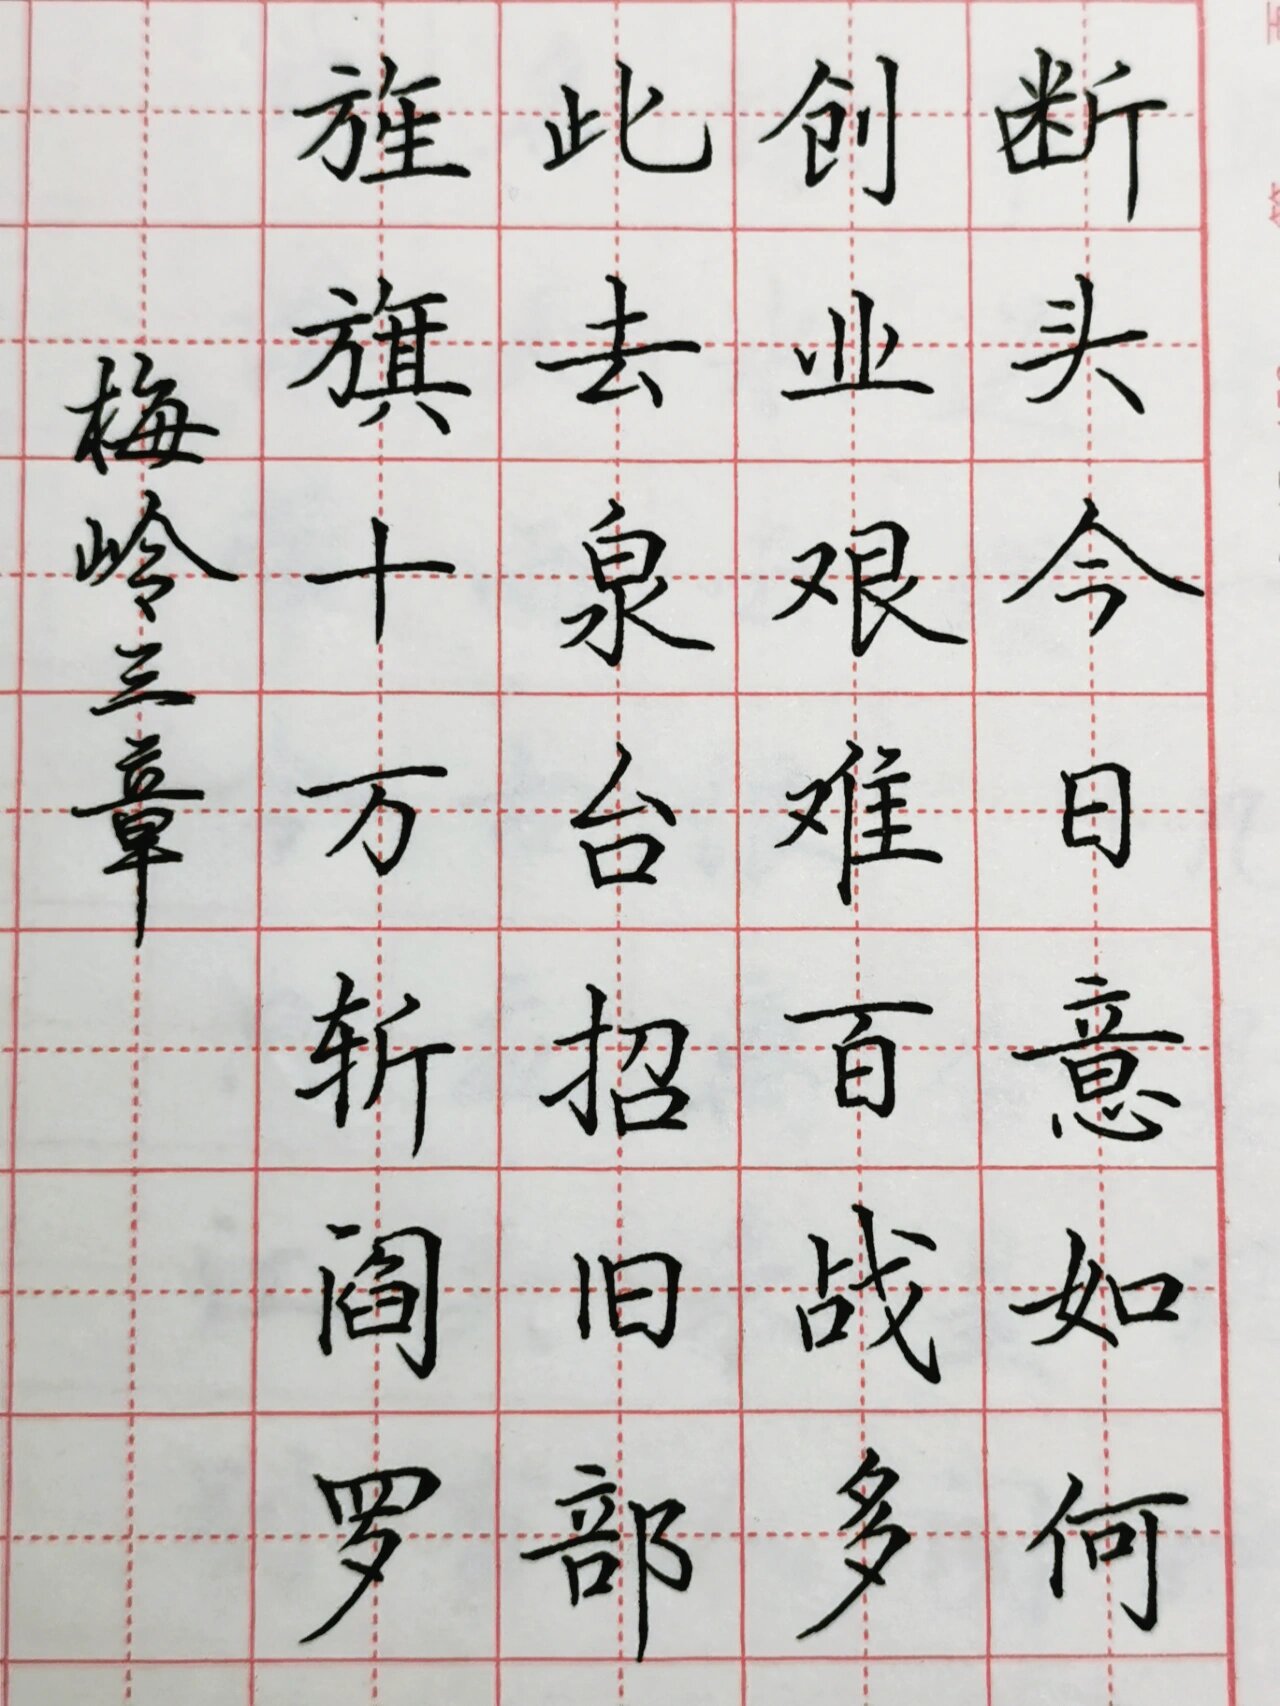 断头今日意如何
创业艰难百战多
此去泉台招旧部
旌旗十万斩阎罗
梅岭三章